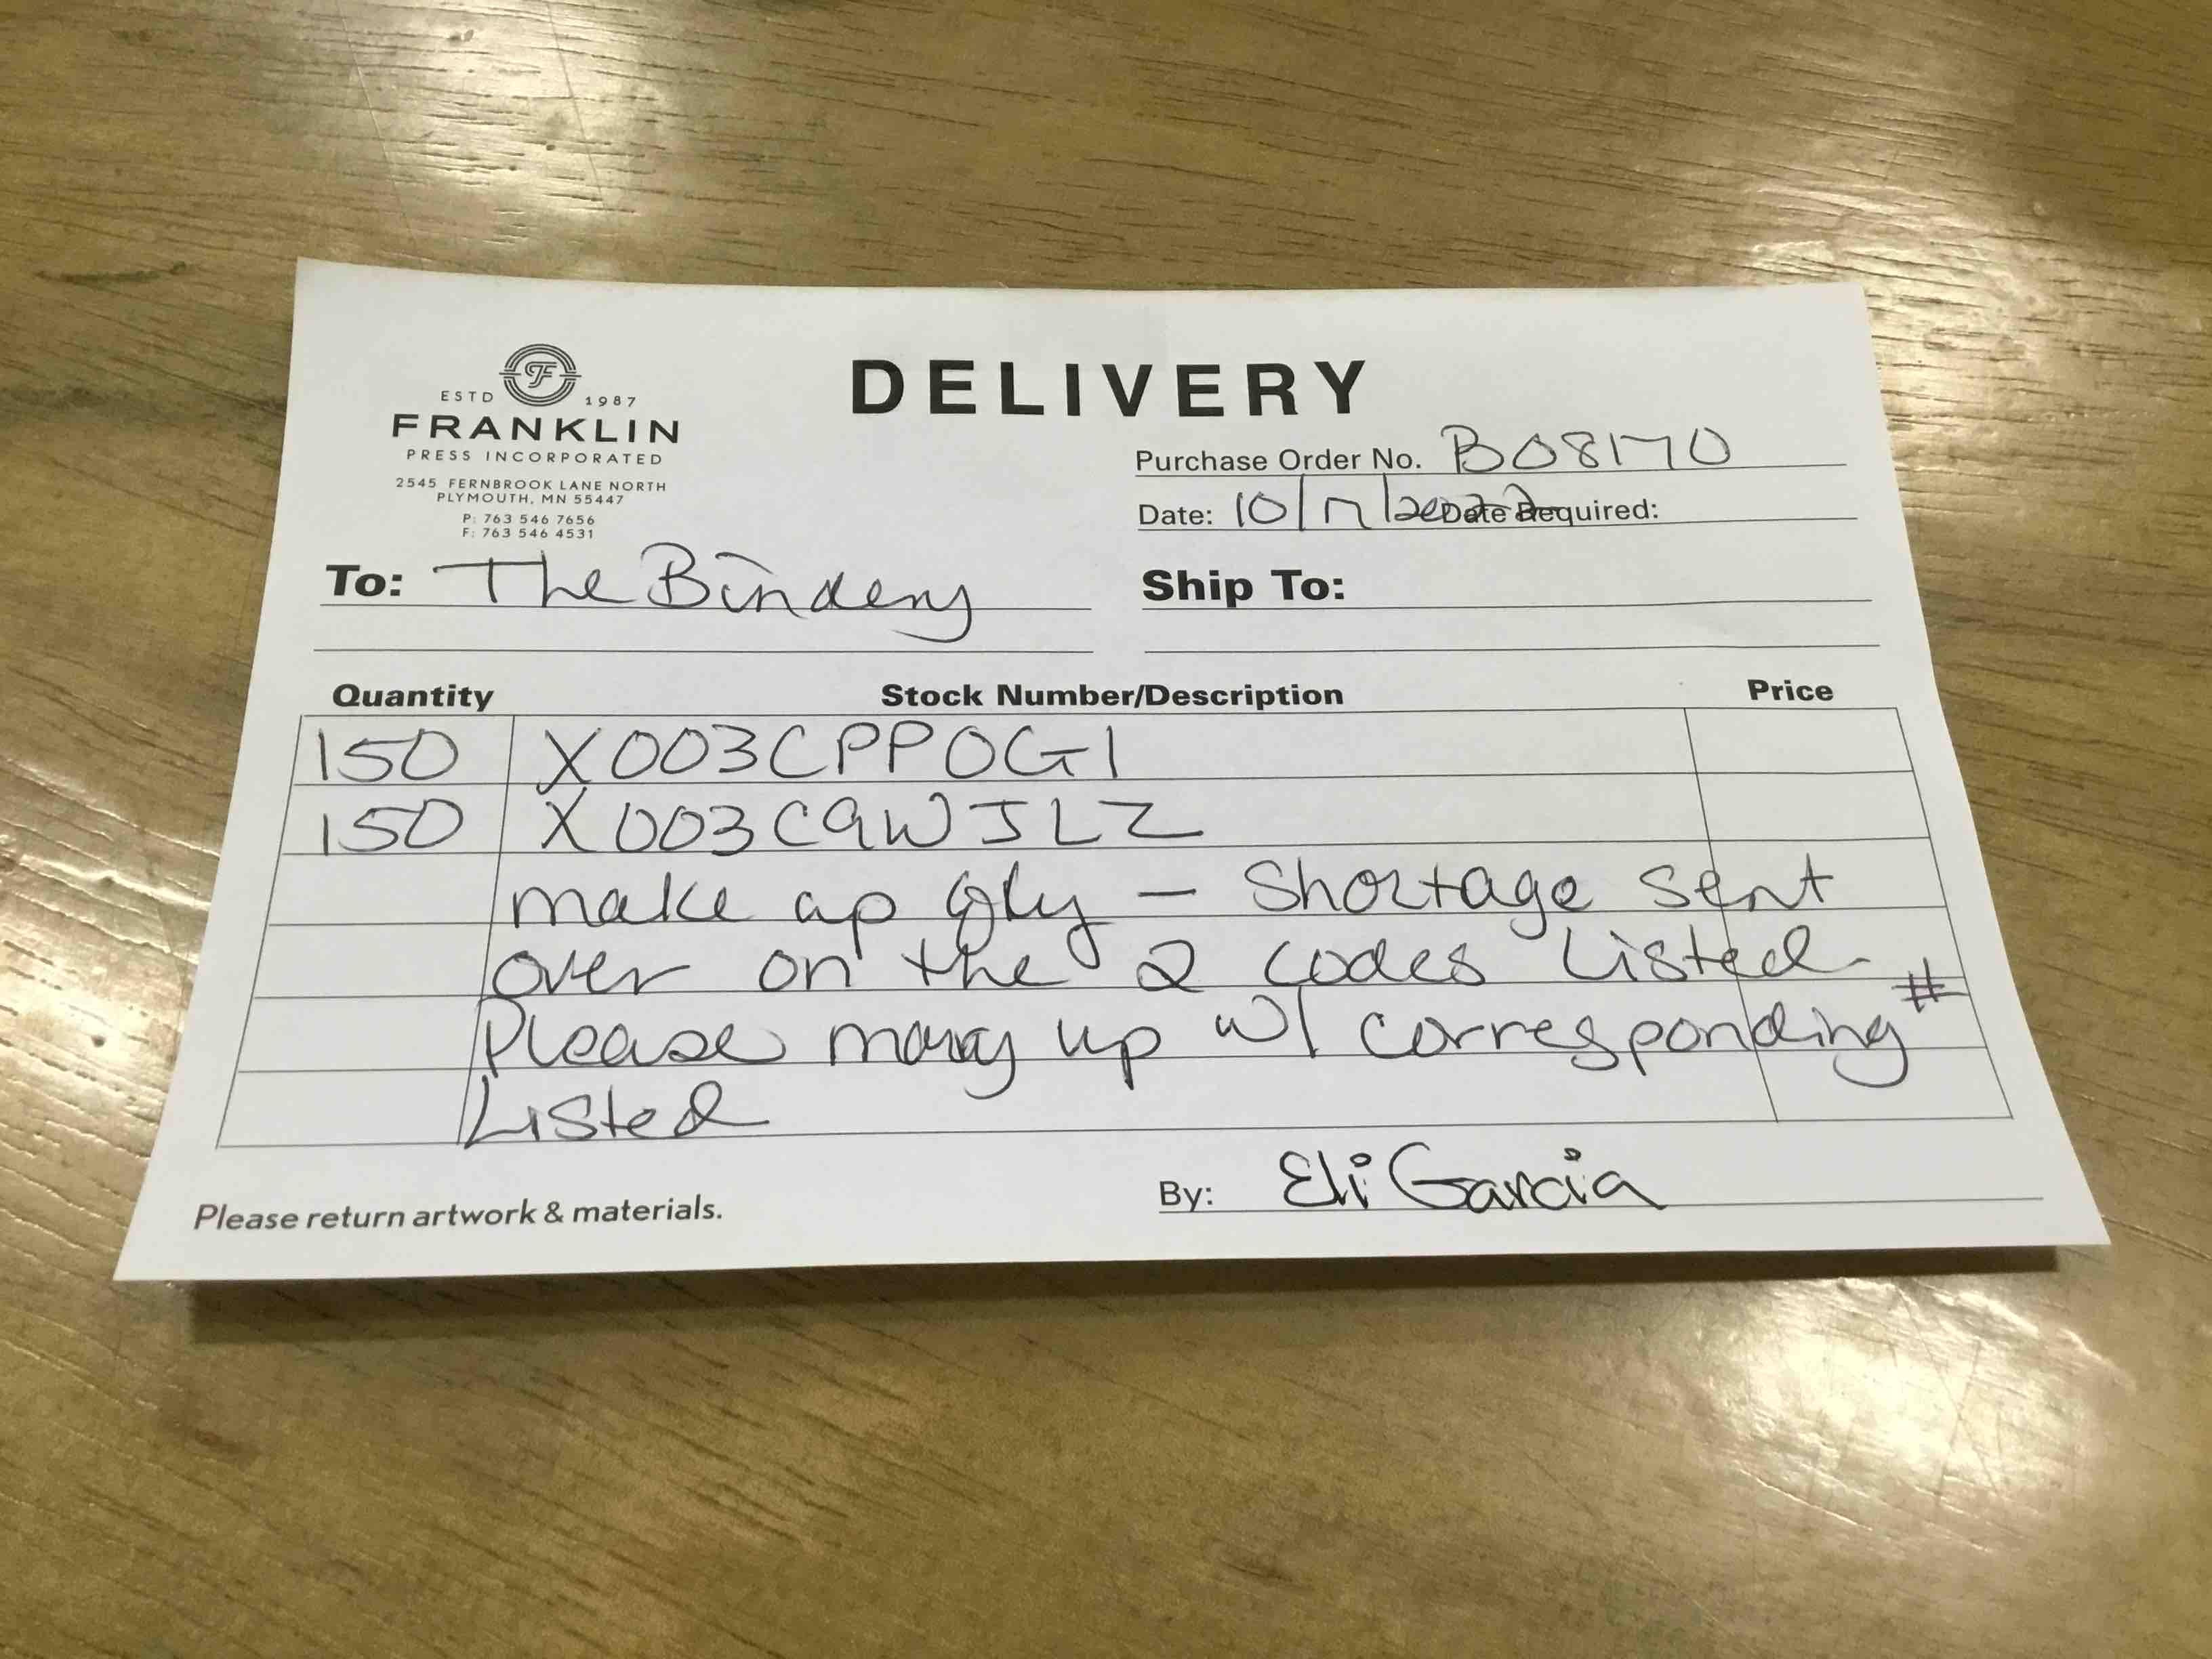 ESTD 1987
FRANKLIN
PRESS INCORPORATED
2545 FERNBROOK LANE NORTH
PLYMOUTH, MN 55447
P: 763 546 7656
F: 763 546 4531
DELIVERY
Purchase Order No. B08170
Date: 10/17/2022 Date Required:
To: The Bindery
Ship To:
Quantity Stock Number/Description Price
150 X003CPPOG1
150 X003C9WJLZ
make up Qty - Shortage sent
over on the 2 codes Listed.
Please up w/ corresponding #
Listed
Please return artwork & materials.
By: Eli Garcia